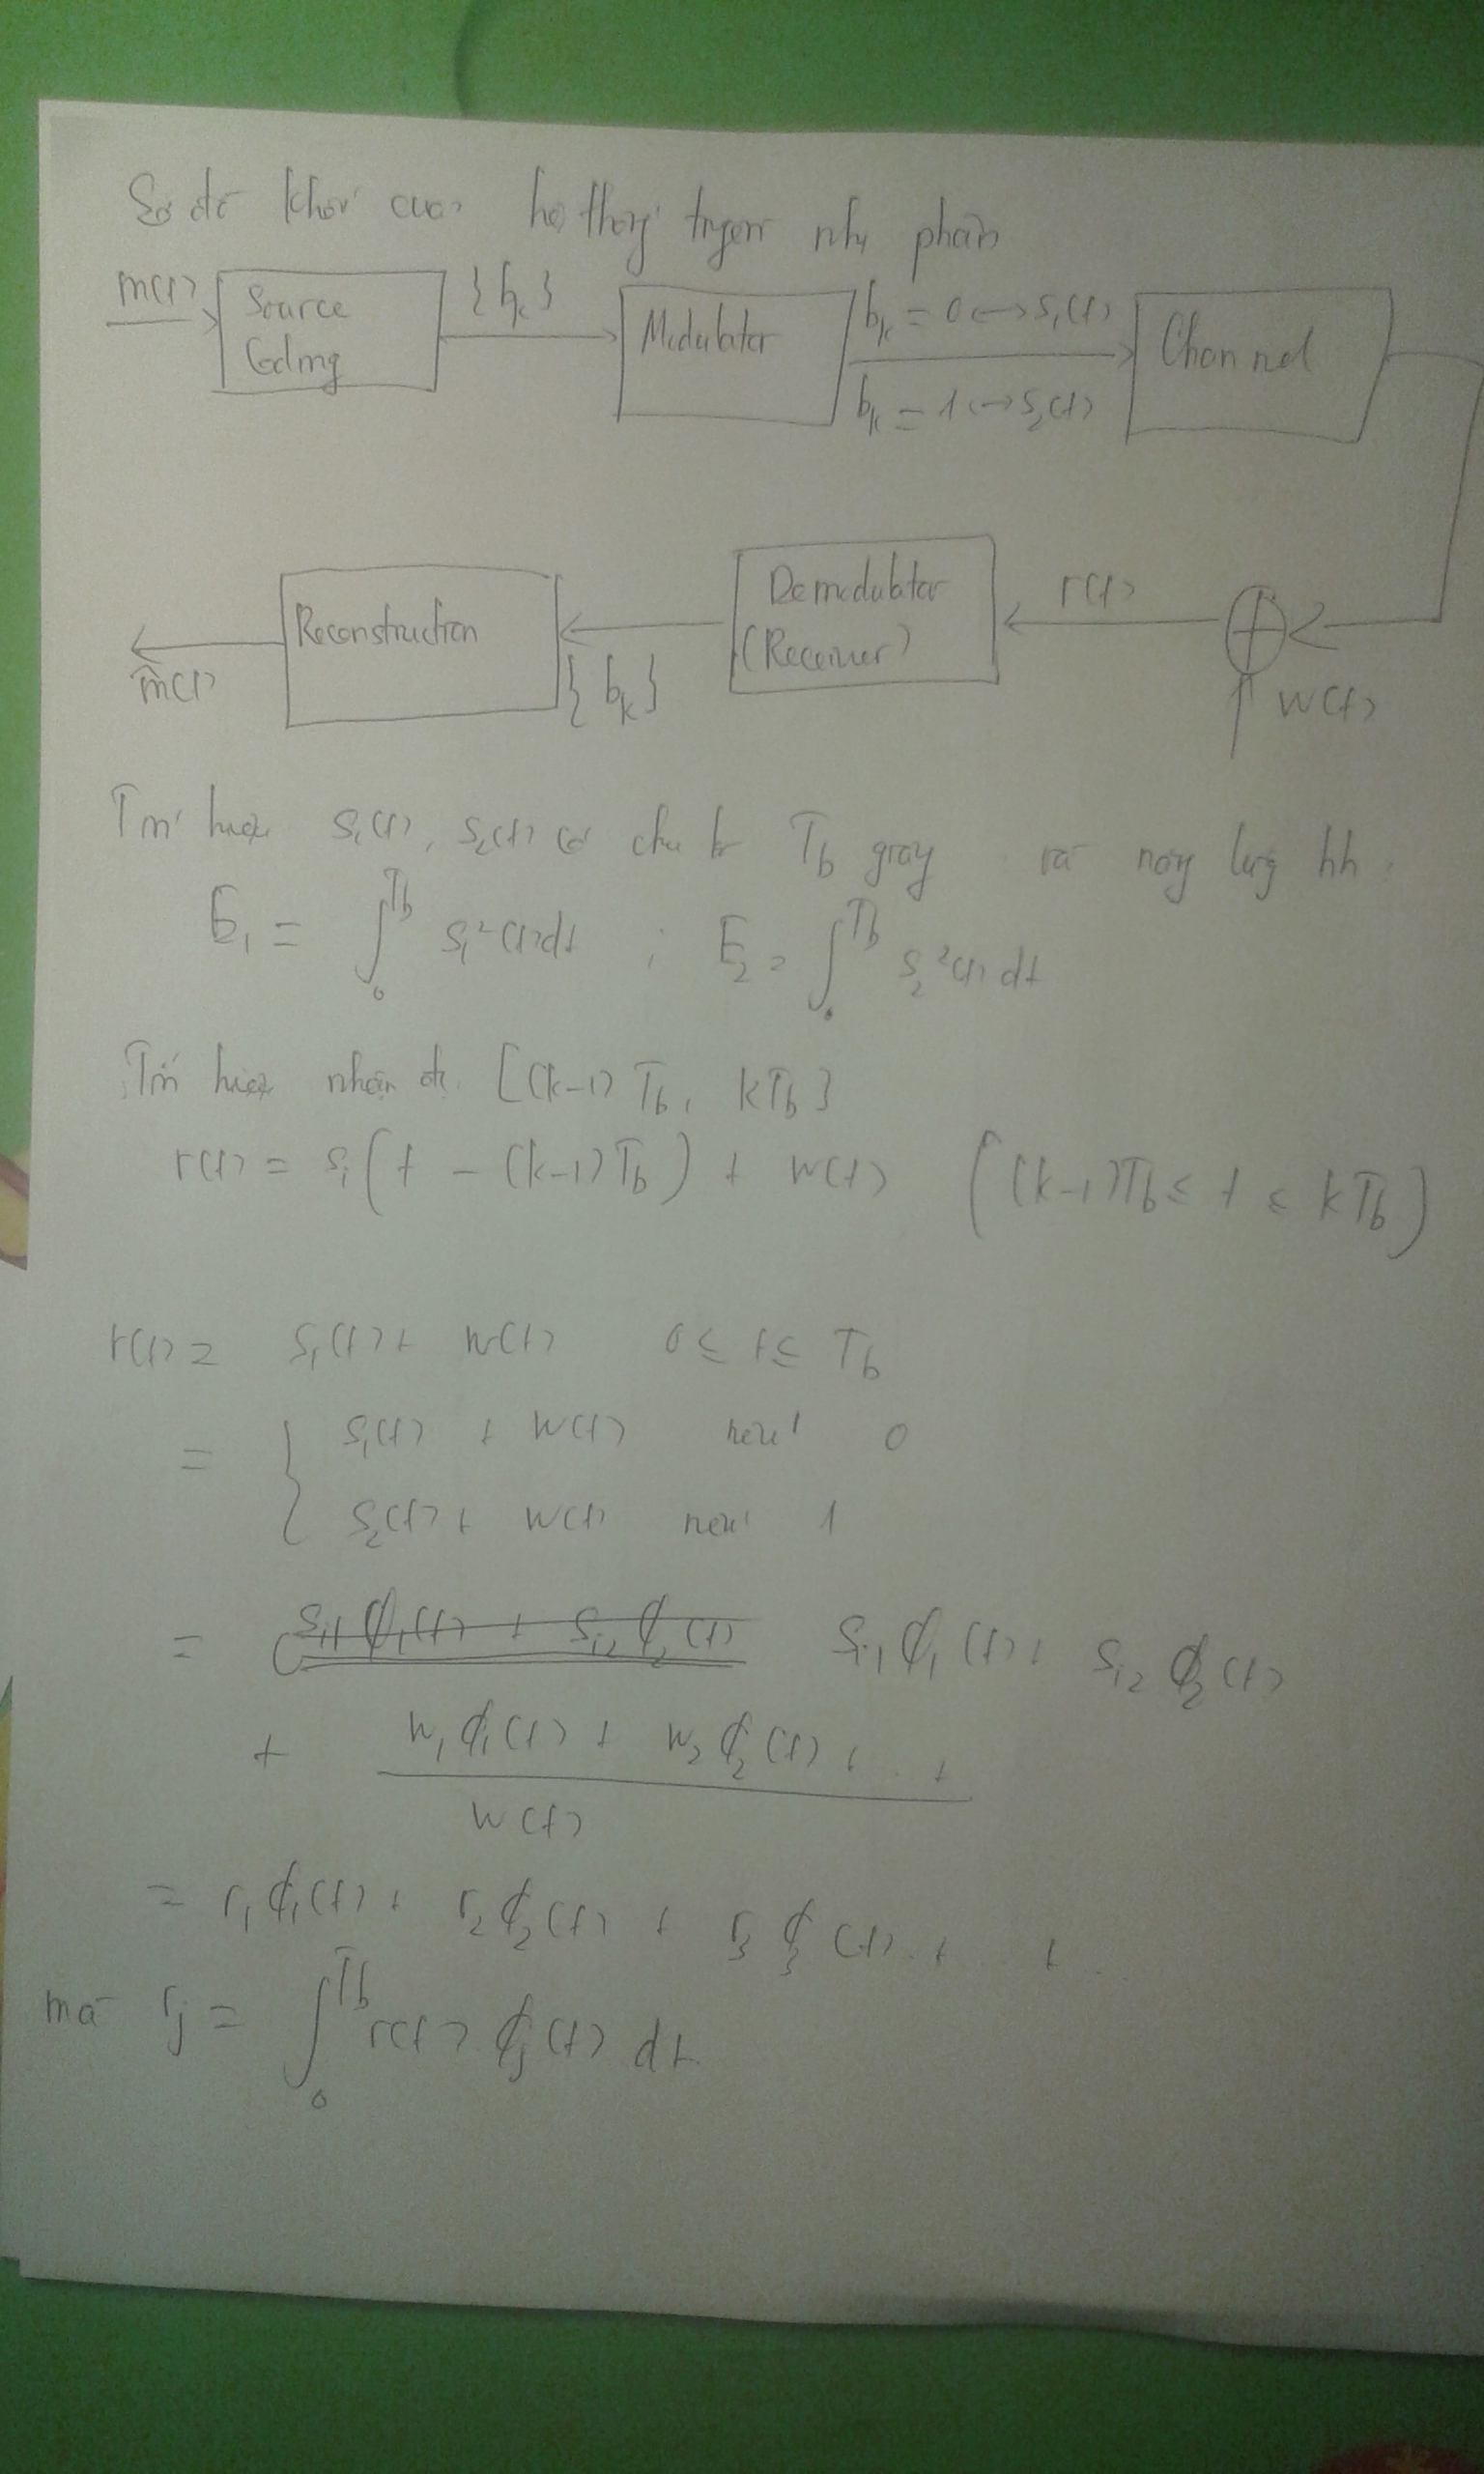 Sơ đồ khối của hệ thống truyền nhị phân
m(t)
Source
Coding
{bk}
Modulator
bk = 0 ↔ s1(t)
bk = 1 ↔ s2(t)
Channel
r(t)
w(t)
Demodulator
(Receiver)
{bk}
Reconstruction
m̂(t)
Tín hiệu s1(t), s2(t) có chu kỳ Tb giây và năng lượng hh.
E1 = ∫0^Tb s1²(t)dt ; E2 = ∫0^Tb s2²(t) dt
Tín hiệu nhận đc [(k-1) Tb, kTb]
r(t) = si(t - (k-1)Tb) + w(t) ((k-1)Tb ≤ t ≤ kTb)
r(t) = si(t) + w(t) 0 ≤ t ≤ Tb
= { s1(t) + w(t) nếu 0
s2(t) + w(t) nếu 1
= si1 ϕ1(t) + si2 ϕ2(t) si1 ϕ1(t) + si2 ϕ2(t)
+ w1 ϕ1(t) + w2 ϕ2(t) + .. +
w(t)
= r1 ϕ1(t) + r2 ϕ2(t) + r3 ϕ3(t) + +..
mà rj = ∫0^Tb r(t) ϕj(t) dt.